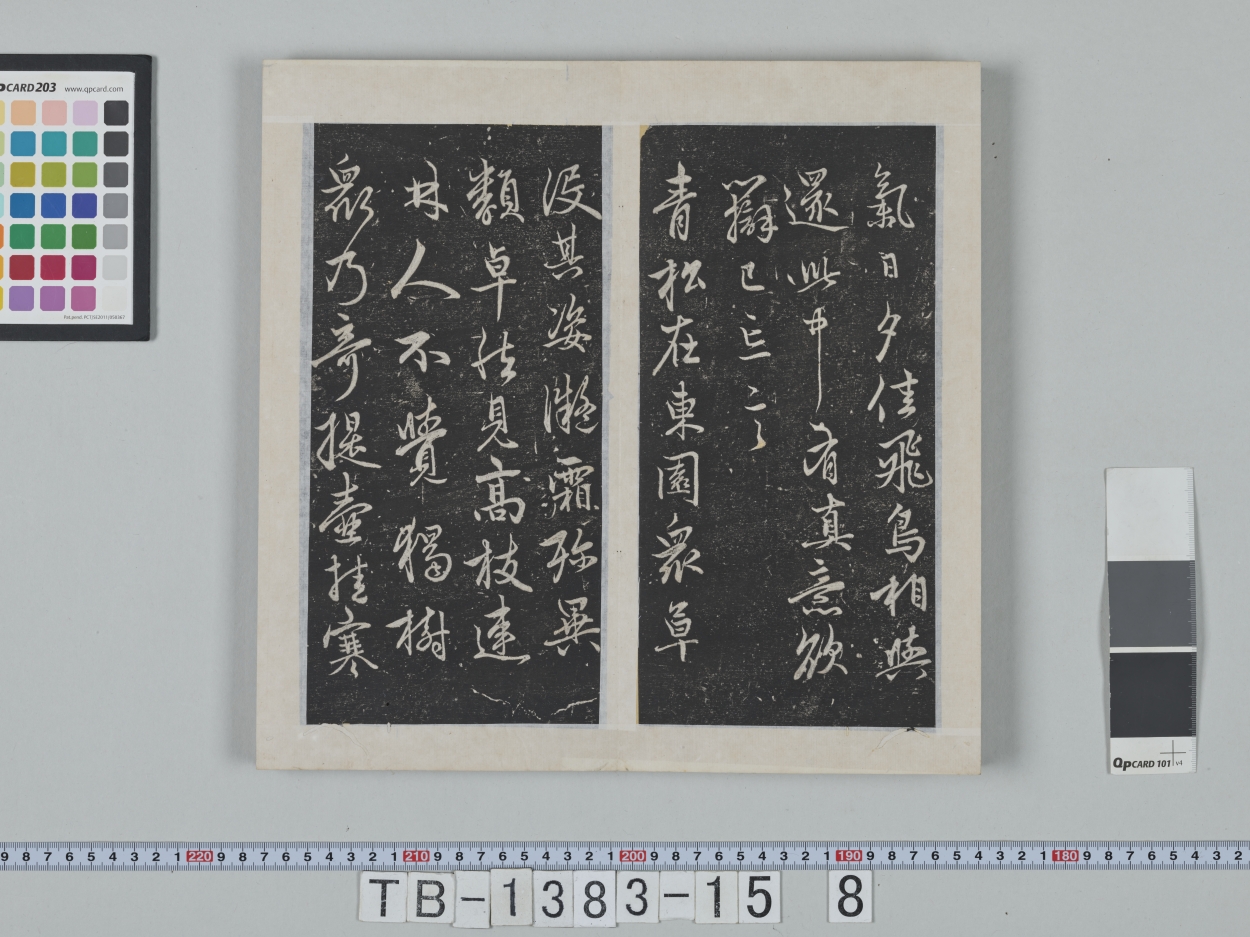 氣日夕佳飛鳥相與
還此中有真意欲
辯已忘言
青松在東園眾草
沒其姿凝霜殄異
類卓然見高枝連
林人不覺獨樹
眾乃奇提壺挂寒
pCARD 203 www.qpcard.com
QpCARD 101 v4
9 8 7 6 5 4 3 2 1 220 9 8 7 6 5 4 3 2 1 210 9 8 7 6 5 4 3 2 1 200 9 8 7 6 5 4 3 2 1 190 9 8 7 6 5 4 3 2 1 180 9 8 7 6 5 4 3 2
TB-1383-15 8